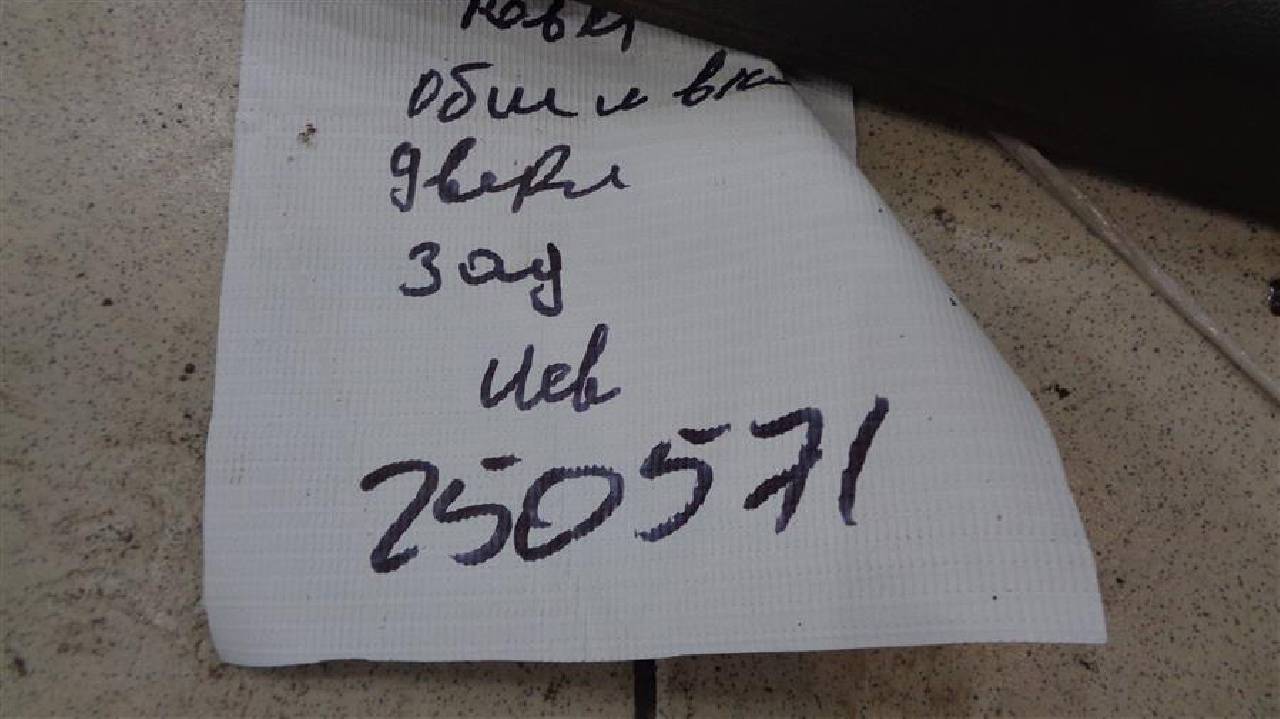 обшивка
двери
зад
лев
250571